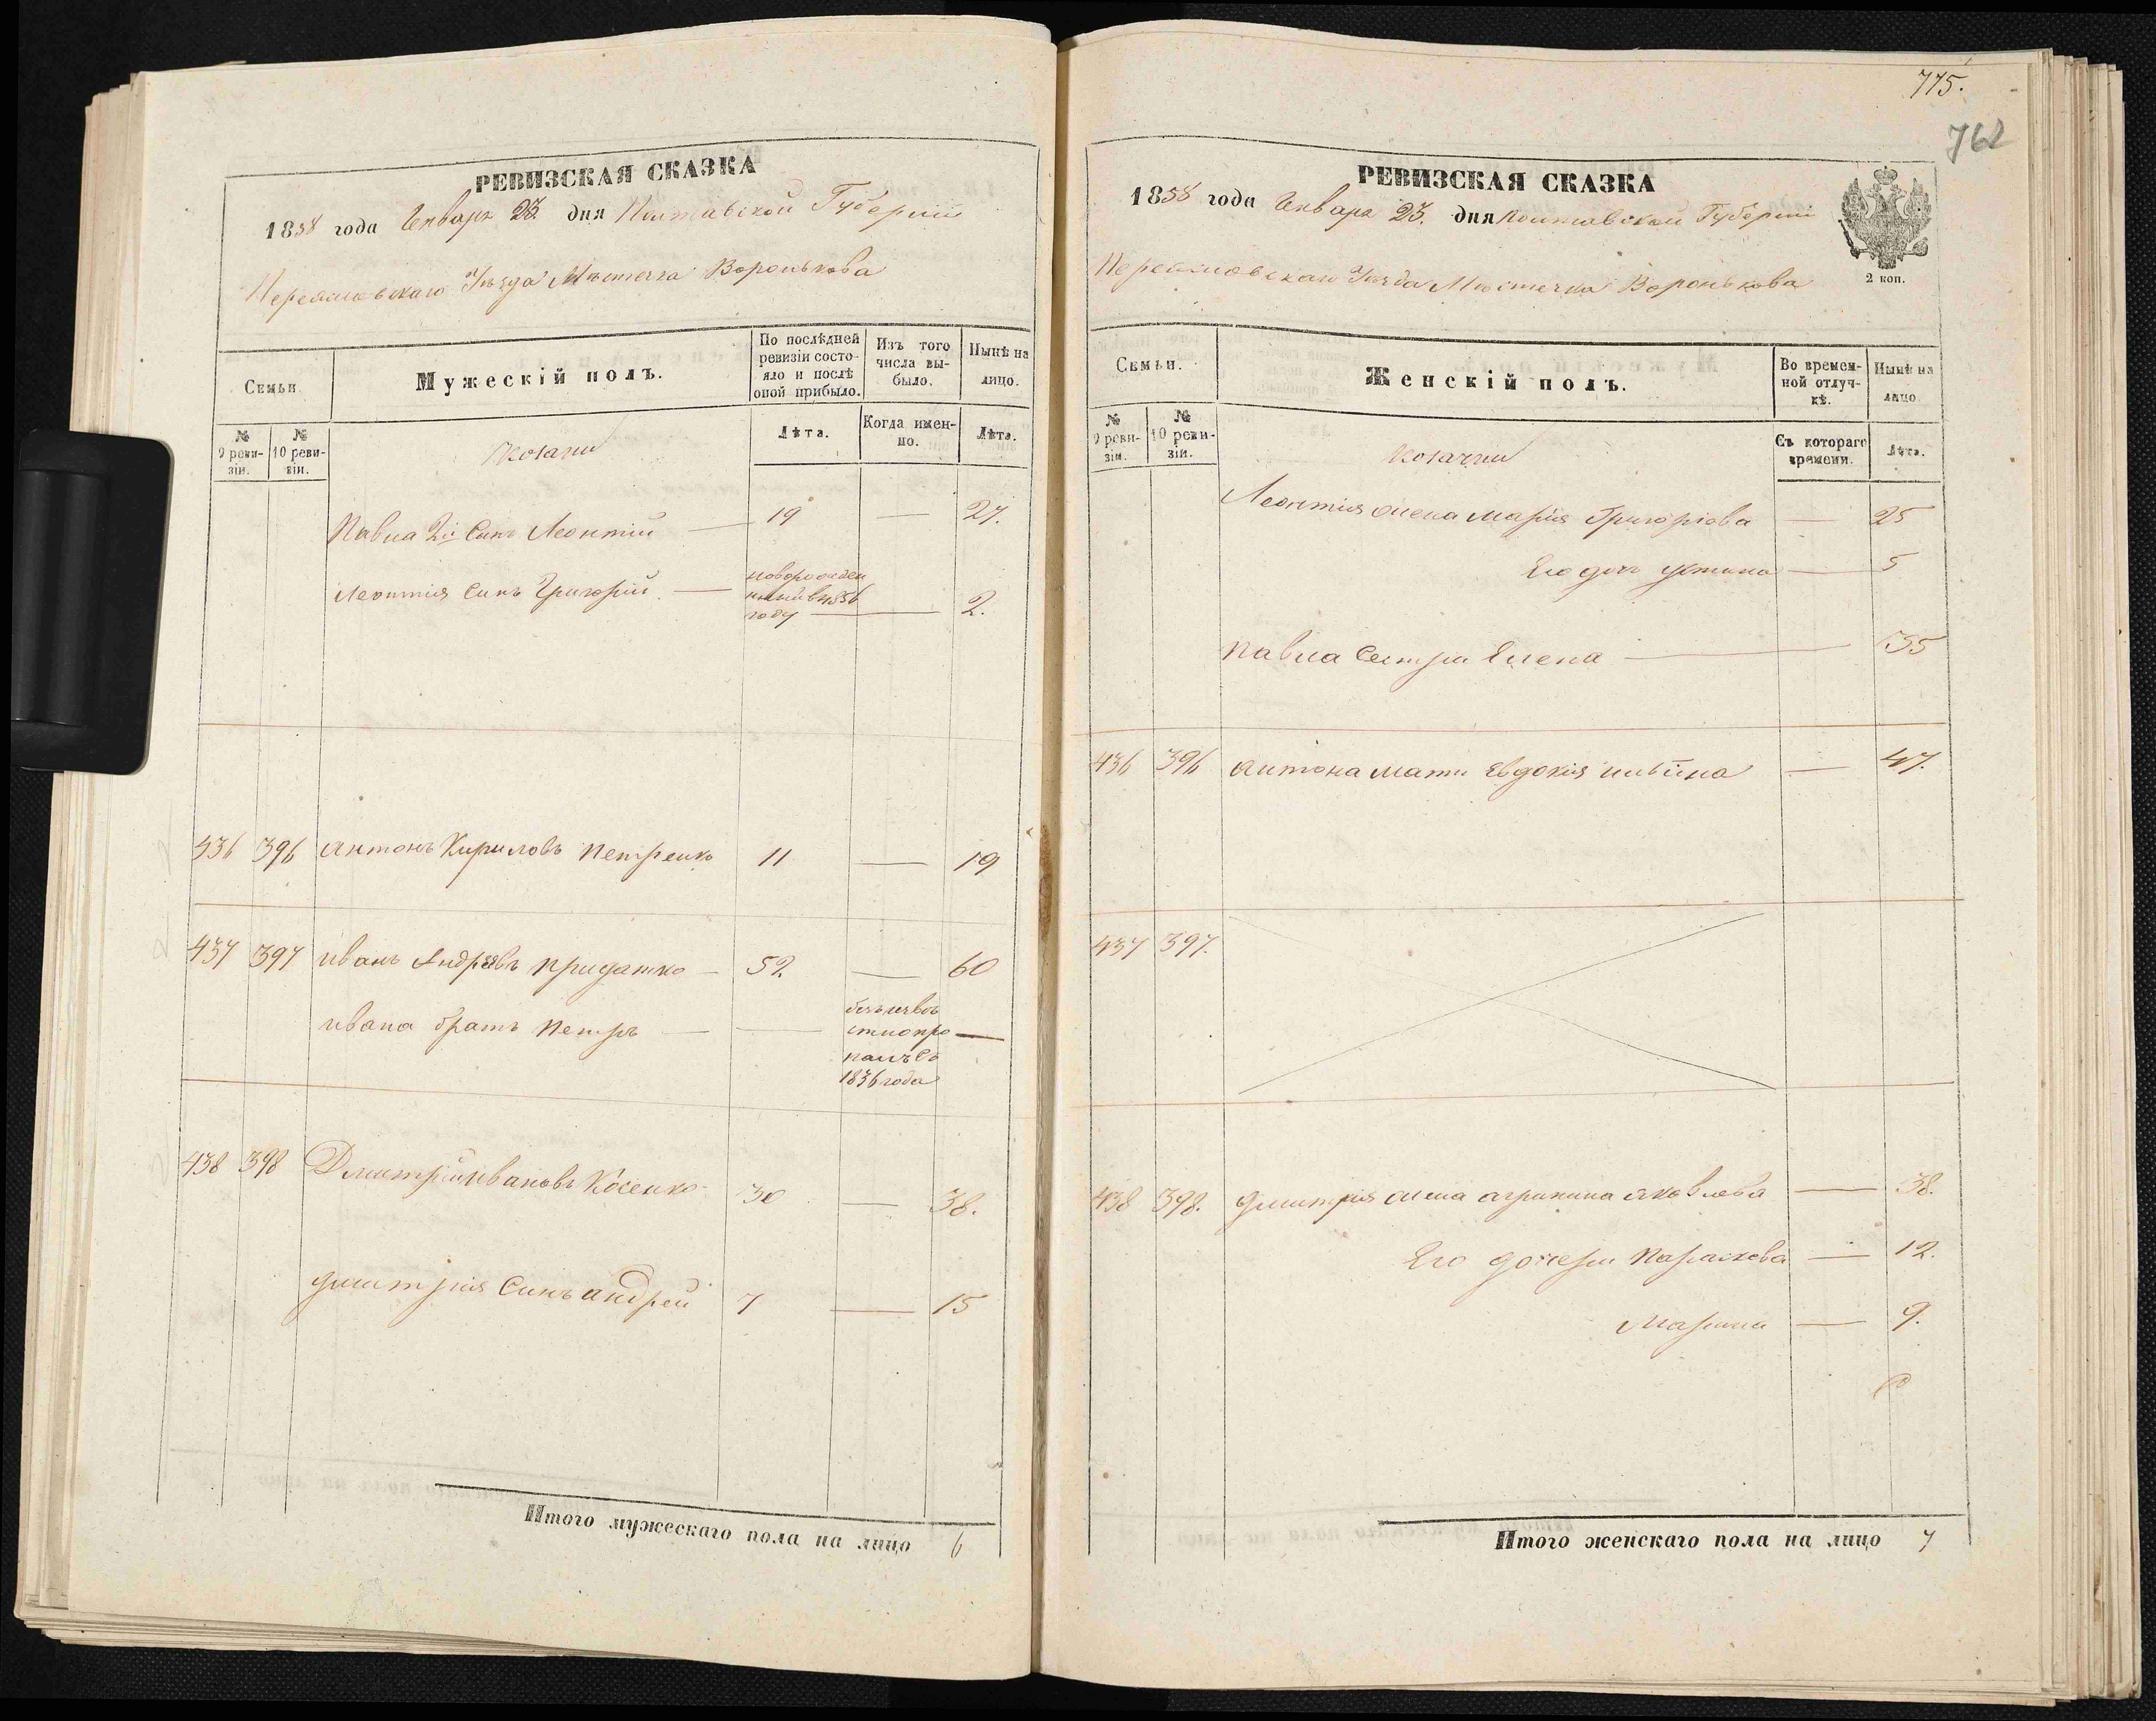 РЕВИЗСКАЯ СКАЗКА
1858 года Генваря 23. дня Полтавской Губерніи
Переяславскаго Уѣзда Мѣстечка Воронькова
Семьи
Мужескій полъ.
По послѣдней ревизіи состояло и послѣ оной прибыло.
Изъ того числа выбыло.
Нынѣ на лицо.
№ 9 ревизіи.
№ 10 ревизіи.
Козаки
Лѣта.
Когда именно.
Лѣта.
Павла 2й Синъ Леонтий — 19 — 27.
Леонтия Синъ Григорий — новорожден
ный в 1856
году — 2.
436 396 Антонъ Кириловъ Петренко 11 — 19
437 397 Иванъ Андреевъ Придатко — 52. — 60
Ивана братъ Петръ — —
безъизвѣ
стно про —
палъ съ
1836 года
438 398 Дмитрий Ивановъ Косенко 30 — 38.
Дмитрия Синъ Андрей 7 — 15
Итого мужескаго пола на лицо 6
775.
762
РЕВИЗСКАЯ СКАЗКА
1858 года Генваря 23. дня Полтавской Губерніи
2 коп.
Переяславскаго Уѣзда Мѣстечка Воронькова
Семьи.
Женскій полъ.
Во временной отлучкѣ.
Нынѣ на лицо
№ 9 ревизіи.
№ 10 ревизіи.
Козачки
Съ котораго времени.
Лѣта.
Леонтия жена Мария Григориева — 25
Его дочь Устина — 5
Павла Сестра Елена — 55
436 396 Антона мати Евдокия — 47.
437 397.
438 398. Дмитрия жена Агрипина Яковлева — 38.
Его дочери Параскева — 12.
Марина — 9.
Итого женскаго пола на лицо 7